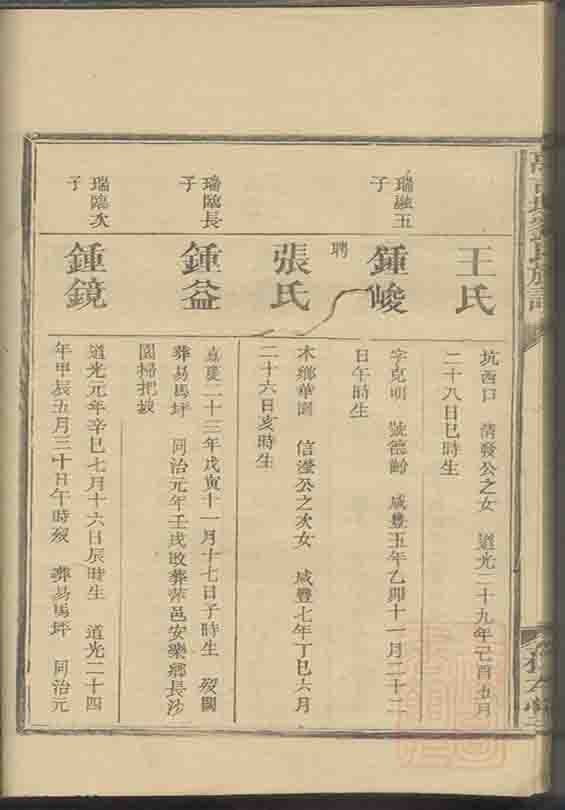 王氏
坑西口 清發公之女 道光二十九年己酉五月
二十八日巳時生
瑞融五
子
鍾峻
字克明 號德齡 咸豐五年乙卯十一月二十二
日午時生
聘
張氏
木鄉華園 信瀅公之次女 咸豐七年丁巳六月
二十六日亥時生
瑞臨長
子
鍾益
嘉慶二十三年戊寅十一月十七日子時生 歿闕
葬易馬坪 同治元年壬戌改葬萍邑安樂鄉長沙
園掃把坡
瑞臨次
子
鍾鏡
道光元年辛巳七月十六日辰時生 道光二十四
年甲辰五月三十日午時歿 葬易馬坪 同治元